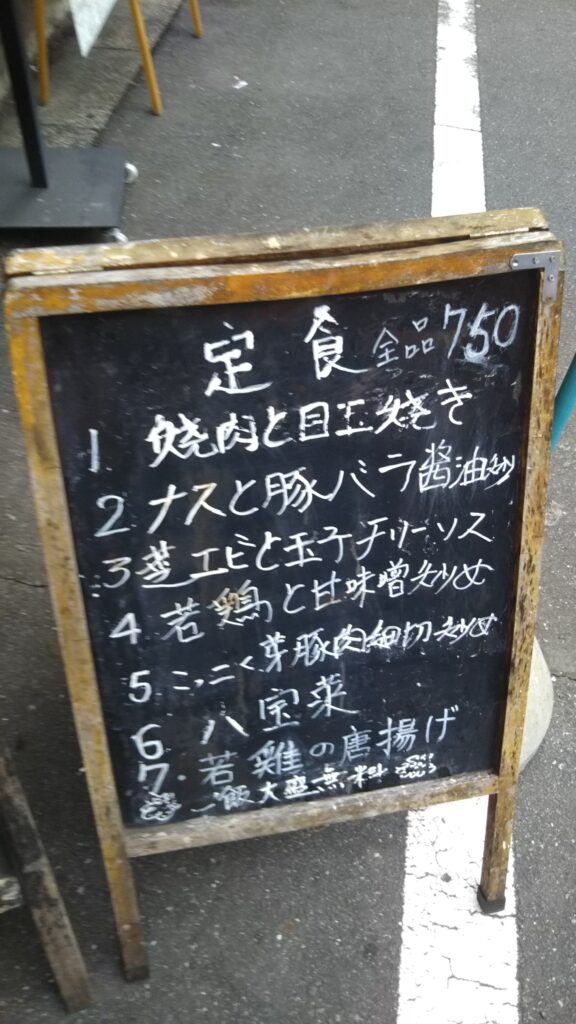 定食 全品750
1. 焼肉と目玉焼き
2 ナスと豚バラ醬油炒
3 芝エビと玉子チリーソス
4 若鶏と甘味噌炒め
5 ニンニク芽豚肉細切炒め
6 八宝菜
7. 若雞の唐揚げ
ご飯大盛無料